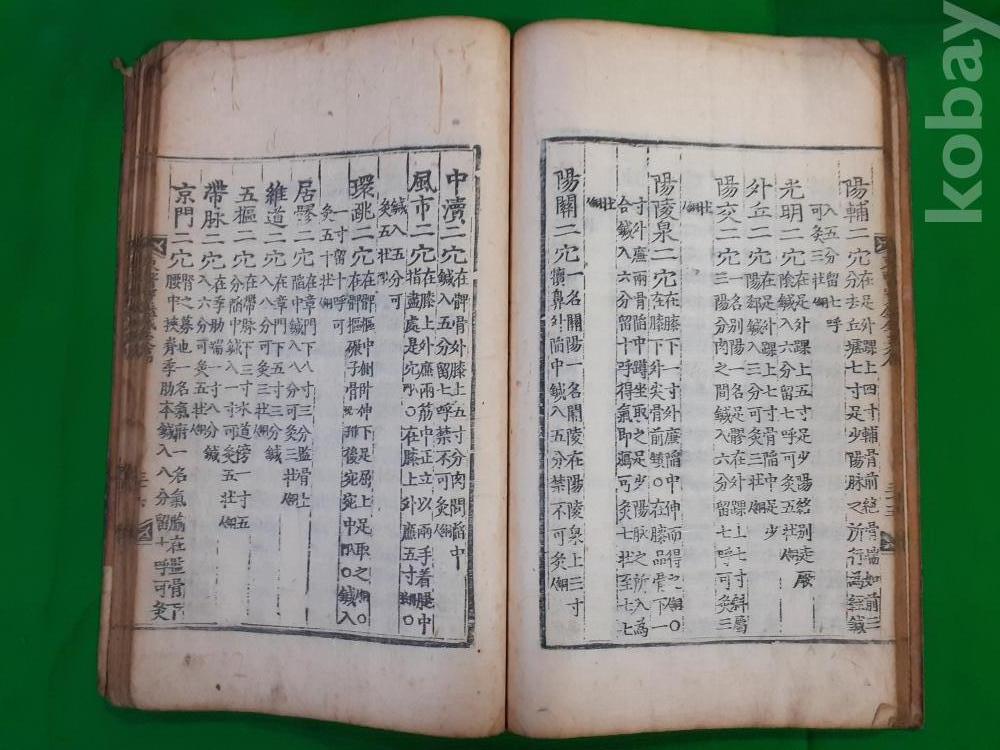 陽輔二穴
在足外踝上四寸輔骨前絶骨端如前三
分去丘墟七寸足少陽脉之所行為經鍼
入五分留七呼
可灸三壯銅
光明二穴
在足外踝上五寸足少陽絡別走厥
陰鍼入六分留七呼可灸五壯銅
外丘二穴
在足外踝上七寸骨陷中足少
陽郄鍼入三分可灸三壯銅
陽交二穴
一名別陽一名足髎在外踝上七寸斜屬
三陽分肉之間鍼入六分留七呼可灸三
壯銅
陽陵泉二穴
在膝下一寸外廉陷中伸而得之銅○
在膝下外尖骨前○在膝品骨下一
寸外廉兩骨陷中蹲坐取之足少陽脉之所入為
合鍼入六分留十呼得氣即瀉可灸七壯至七七
壯銅
陽關二穴
一名關陽一名關陵在陽陵泉上三寸
犢鼻外陷中鍼入五分禁不可灸銅
中瀆二穴
在髀骨外膝上五寸分肉間陷中
鍼入五分留七呼禁不可灸銅
風市二穴
在膝上外廉兩筋中正立以兩手着腿中
指盡處是穴○在膝上外廉五寸○
鍼入五分可
灸五壯
環跳二穴
在髀樞中側卧伸下足屈上足取之銅○
在髀樞碾子骨後宛宛中○鍼入
一寸留十呼可
灸五十壯銅
居髎二穴
在章門下八寸三分監骨上
陷中鍼入八分可灸三壯銅
維道二穴
在章門下五寸三分鍼
入八分可灸三壯銅
五樞二穴
在帶脉下三寸水道傍一寸五
分陷中鍼入一寸可灸五壯銅
帶脉二穴
在季肋端一寸八分鍼
入六分可灸五壯銅
京門二穴
腎之募也一名氣府一名氣腧在監骨下
腰中挾脊季肋本鍼入八分留十呼可灸
kobay